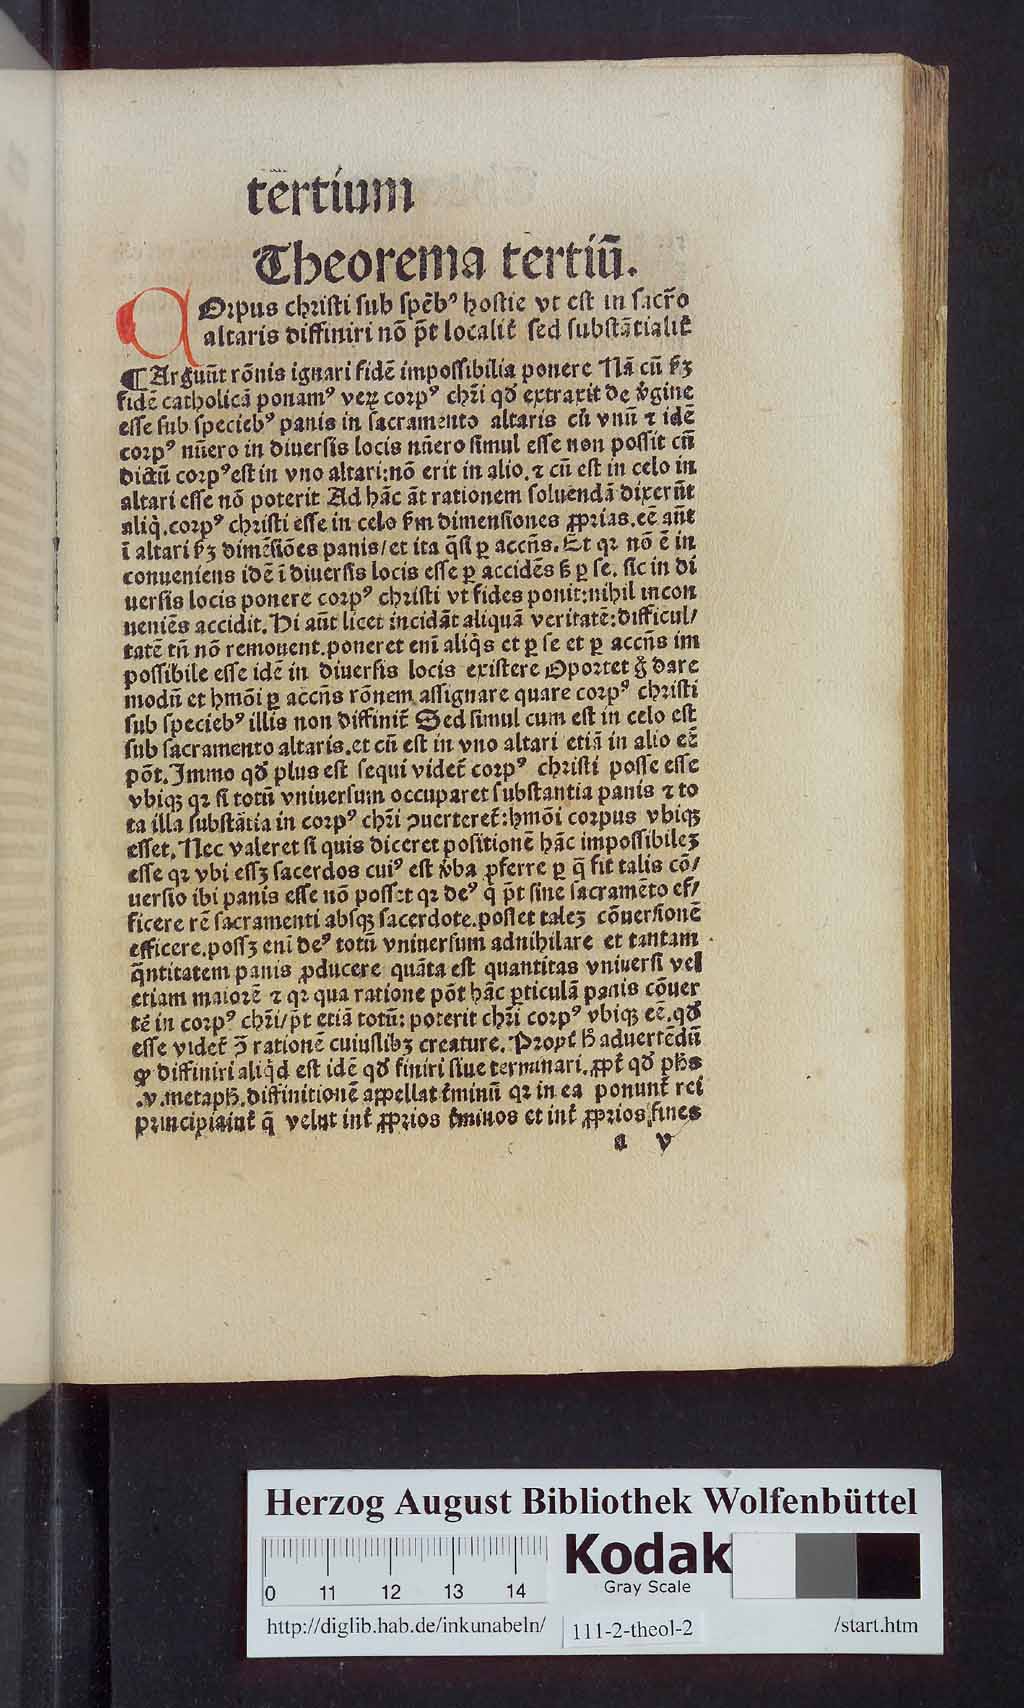 tertium
Theorema tertiū.
Orpus christi sub spēbꝰ hostie vt est in sacr̄o
altaris diffiniri nō p̄t localiť sed substātialiť
¶ Arguūt rōnis ignari fidē impossibilia ponere Nā cū ẜꝫ
fidē catholicā ponamꝰ veꝝ corpꝰ chr̄i qd̛ extraxit de v̛gine
esse sub speciebꝰ panis in sacramento altaris cū vnū ⁊ idē
corpꝰ nūero in diuersis locis nūero simul esse non possit cū
dictū corpꝰ est in vno altari: nō erit in alio. ⁊ cū est in celo in
altari esse nō poterit Ad hāc āt rationem soluendā dixerūt
aliq̇. corpꝰ christi esse in celo ẜm dimensiones ꝓprias. eē aūt
ī altari ẜꝫ dimēsiōes panis/ et ita q̄si ꝑ accn̄s. Et qꝛ nō ē in
conueniens idē ī diuersis locis esse ꝑ accidēs ẜ ꝑ se. sic in di
uersis locis ponere corpꝰ christi vt fides ponit: nihil incon
ueniēs accidit. Hi aūt licet incidāt aliquā veritatē: difficul/
tatē tn̄ nō remouent. poneret eni̅ aliq̇s et ꝑ se et ꝑ accn̄s im
possibile esse idē in diuersis locis existere Oportet g̊ dare
modū et hmōi ꝑ accn̄s rōnem assignare quare corpꝰ christi
sub speciebꝰ illis non diffiniť Sed simul cum est in celo est
sub sacramento altaris. et cū est in vno altari etiā in alio eē
pōt. Immo qd̛ plus est sequi videť corpꝰ christi posse esse
vbiqꝫ qꝛ si totū vniuersum occuparet substantia panis ⁊ to
ta illa substātia in corpꝰ chr̄i ꝯuertereť: hmōi corpus vbiqꝫ
esset. Nec valeret si quis diceret positionē hāc impossibileꝫ
esse qꝛ vbi essꝫ sacerdos cuiꝰ est v̛ba ꝓferre ꝑ q̄ fit talis cō/
uersio ibi panis esse nō posset qꝛ deꝰ q̇ p̄t sine sacramēto ef/
ficere rē sacramenti absqꝫ sacerdote. posset taleꝫ cōuersionē
efficere. possꝫ eni̅ deꝰ totū vniuersum adnihilare et tantam
q̄ntitatem panis ꝓducere quāta est quantitas vniuersi vel
etiam maiorē ⁊ qꝛ qua ratione pōt hāc ꝑticulā panis cōuer
tē in corpꝰ chr̄i/ p̄t etiā totū: poterit chr̄i corpꝰ vbiqꝫ eē. qd̛
esse videť ꝯ̄ rationē cuiuslibꝫ creature. Propť h̊ aduertēdū
ꝙ diffiniri aliq̇d est idē qd̛ finiri siue terminari. ꝓpť qd̛ ph̄s
.v. metaph̄. diffinitionē appellat ťminū qꝛ in ea ponunť rei
principia inť q̄ velut inť ꝓprios ťminos et inť ꝓprios fines
a v
Herzog August Bibliothek Wolfenbüttel
Kodak
Gray Scale
0 11 12 13 14
http://diglib.hab.de/inkunabeln/ 111-2-theol-2 /start.htm